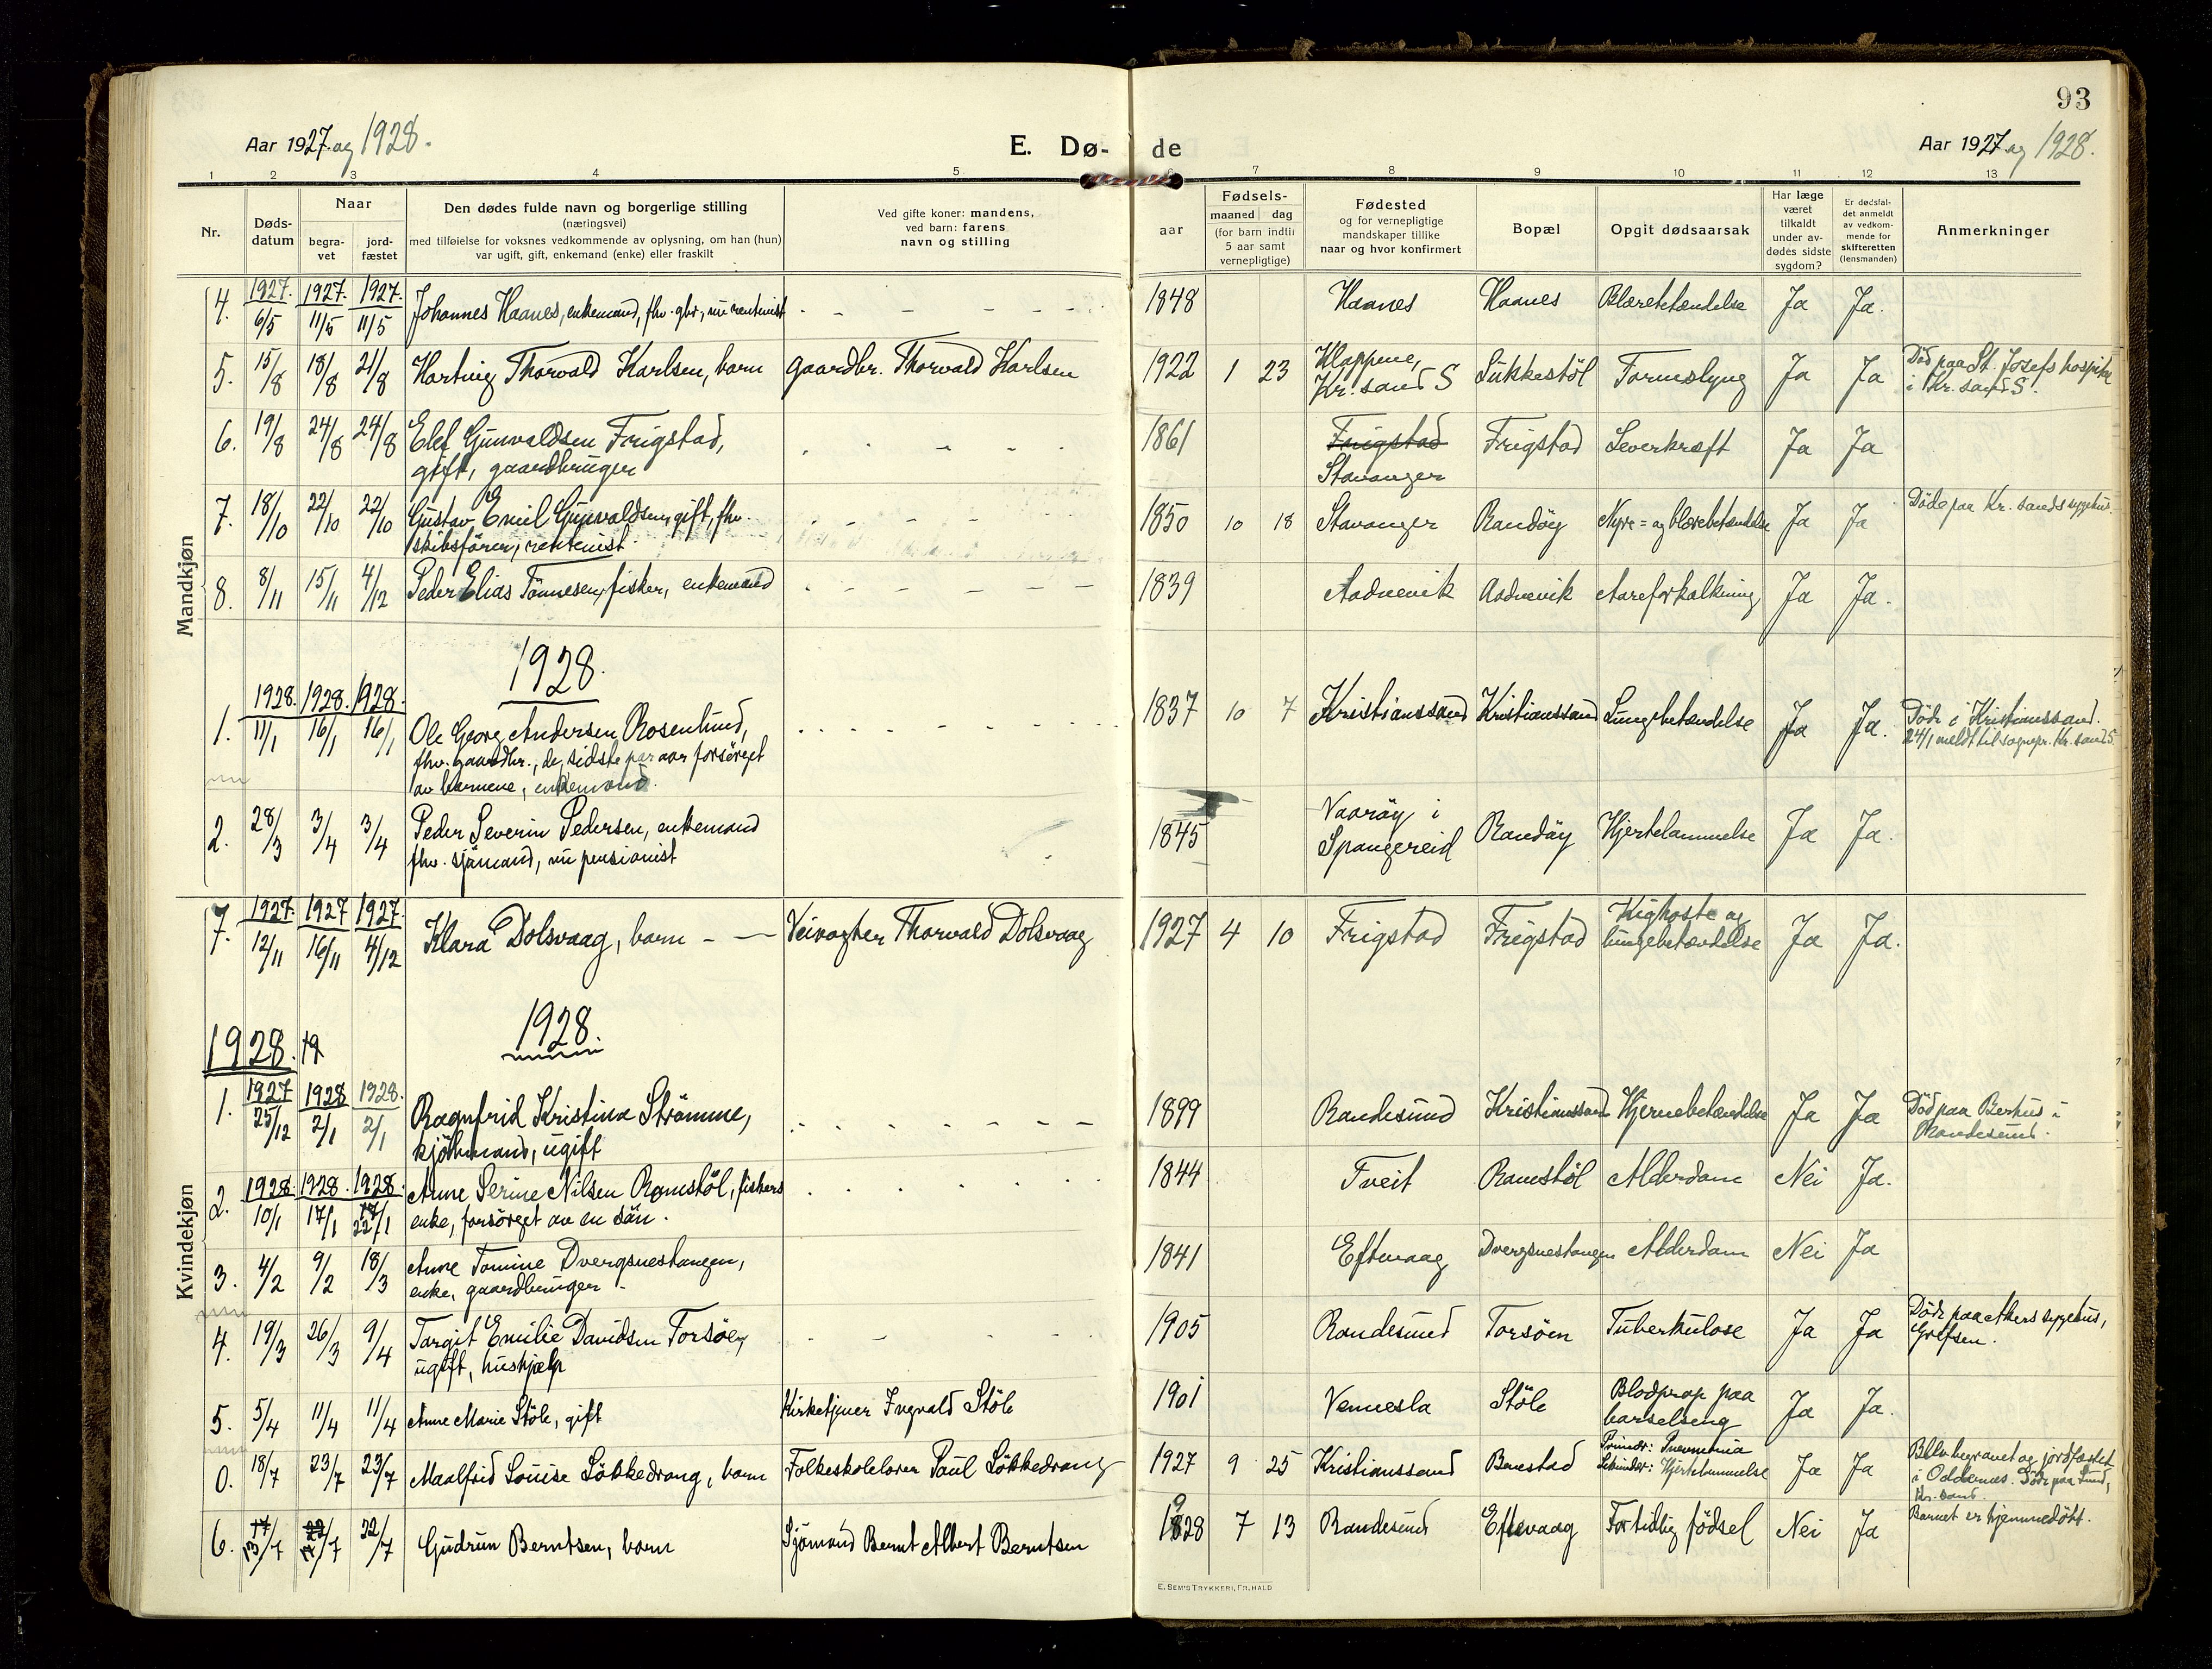 93
Aar 1927 og 1928.
E. Dø- de
Aar 1927 og 1928.
1 2 3 4 5 6 7 8 9 10 11 12 13
Nr.
Døds-
datum
Naar
begra-
vet
jord-
fæstet
Den dødes fulde navn og borgerlige stilling
(næringsvei)
med tilføielse for voksnes vedkommende av oplysning, om han (hun)
var ugift, gift, enkemand (enke) eller fraskilt
Ved gifte koner: mandens,
ved barn: farens
navn og stilling
Fødsels-
aar
maaned dag
(for barn indtil
5 aar samt
vernepligtige)
Fødested
og for vernepligtige
mandskaper tillike
naar og hvor konfirmert
Bopæl
Opgit dødsaarsak
Har læge
været
tilkaldt
under av-
dødes sidste
sygdom?
Er dødsfal-
det anmeldt
av vedkom-
mende for
skifteretten
(lensmanden)
Anmerkninger
Mandkjøn
1927. 1927. 1927.
4. 6/5 11/5 11/5 Johannes Haanes, enkemand, fhv. gbr., nu rentenist 1848 Haanes Haanes Blærebetændelse Ja Ja.
5. 15/8 18/8 21/8 Hartvig Thorvald Karlsen, barn Gaardbr. Thorvald Karlsen 1922 1 23 Kloppene,
Kr.sand S Sukkestöl Tarmslyng Ja Ja Död paa St. Josefs hospital
i Kr. sand S.
6. 19/8 24/8 24/8 Elef Gunvaldsen Frigstad,
gift, gaardbruger 1861 Frigstad
Stavanger Frigstad Leverkræft Ja Ja
7. 18/10 22/10 22/10 Gustav Emil Gunvaldsen, gift, fhv.
skibsförer, rentenist 1850 10 18 Stavanger Randöy Nyre= og blærebetændelse Ja Ja Döde paa Kr. sands sygehus.
8. 8/11 15/11 4/12 Peder Elias Tönnesen, fisker, enkemand 1839 Aadnevik Aadnevik Aareforkalkning Ja Ja.
1928.
1928. 1928. 1928.
1. 11/1 16/1 16/1 Ole Georg Andersen Rosenlund,
fhv. gaardbr., de sidste par aar forsörget
av barnene, enkemand. 1837 10 7 Kristianssand Kristianssand Lungebetændelse Ja Ja. Döde i Kristianssand.
24/1 meldt til sognepr. Kr. sand S.
2. 28/3 3/4 3/4 Peder Severin Pedersen, enkemand
fhv. sjömand, nu pensionist 1845 Vaaröy i
Spangereid Randöy Hjertelammelse Ja Ja.
Kvindekjøn
1927. 1927 1927.
7. 12/11 16/11 4/12 Klara Dolsvaag, barn Veivogter Thorvald Dolsvaag 1927 4 10 Frigstad Frigstad Kighoste og
lungebetændelse Ja Ja.
1928. 1928.
1927 1928 1928.
1. 25/12 2/1 2/1 Ragnfrid Kristina Strömme,
kjöbmand, ugift 1899 Randesund Kristianssand Hjernebetændelse Ja Ja Död paa Berhus i
Randesund.
1928. 1928. 1928.
2. 10/1 17/1 22/1 Anne Serine Nilsen Ramstöl, fiskers
enke, forsörget av en sön. 1844 Tveit Ramstöl Alderdom Nei Ja.
3. 4/2 9/2 18/3 Anne Tomine Dvergsnestangen,
enke, gaardbruger 1841 Eftevaag Dvergsnestangen Alderdom Nei Ja
4. 19/3 26/3 9/4 Targit Emilie Davidsen Torsöen,
ugift, hushjælp 1905 Randesund Torsöen Tuberkulose Ja Ja Döde paa Akers sygehus,
Grefsen.
5. 5/4 11/4 11/4 Anne Marie Stöle, gift Kirketjener Ingvald Stöle 1901 Vennesla Stöle Blodprop paa
barselseng Ja Ja.
0. 18/7 23/7 23/7 Maalfrid Louise Lökkedrang, barn Folkeskolelærer Paul Lökkedrang 1927 9 25 Kristianssand Benestad Primær: Pneumonia
Sekundær: Hjertelammelse Ja Ja Blev begravet og jordfæstet
i Oddernes. Döde paa Lund,
Kr. sand.
6. 13/7 22/7 Gudrun Berntsen, barn Sjömand Bernt Albert Berntsen 1928 7 13 Randesund Eftevaag For tidlig födsel Nei Ja Barnet er hjemmedöbt.
E. SEM'S TRYKKERI, FR.HALD